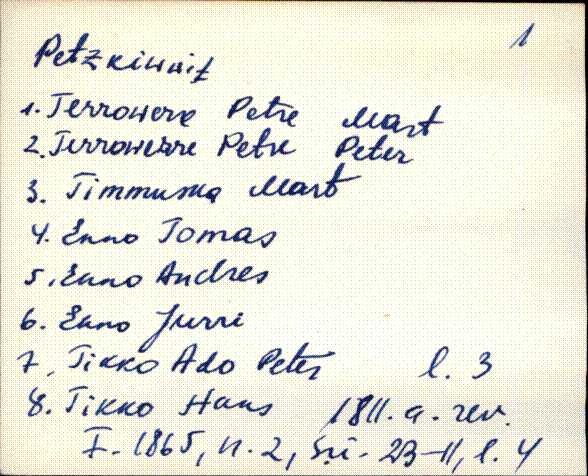 1
Petzkiwwit
1. Terrowerre Petre Mart
2. Terrowerre Petre Peter
3. Timmuska Mart
4. Enno Tomas
5. Enno Andres
6. Enno Jurri
7. Tikko Ado Peter l. 3
8. Tikko Hans 1811. a. rev.
F. 1865, n. 2, sü. 2B-11, l. 4